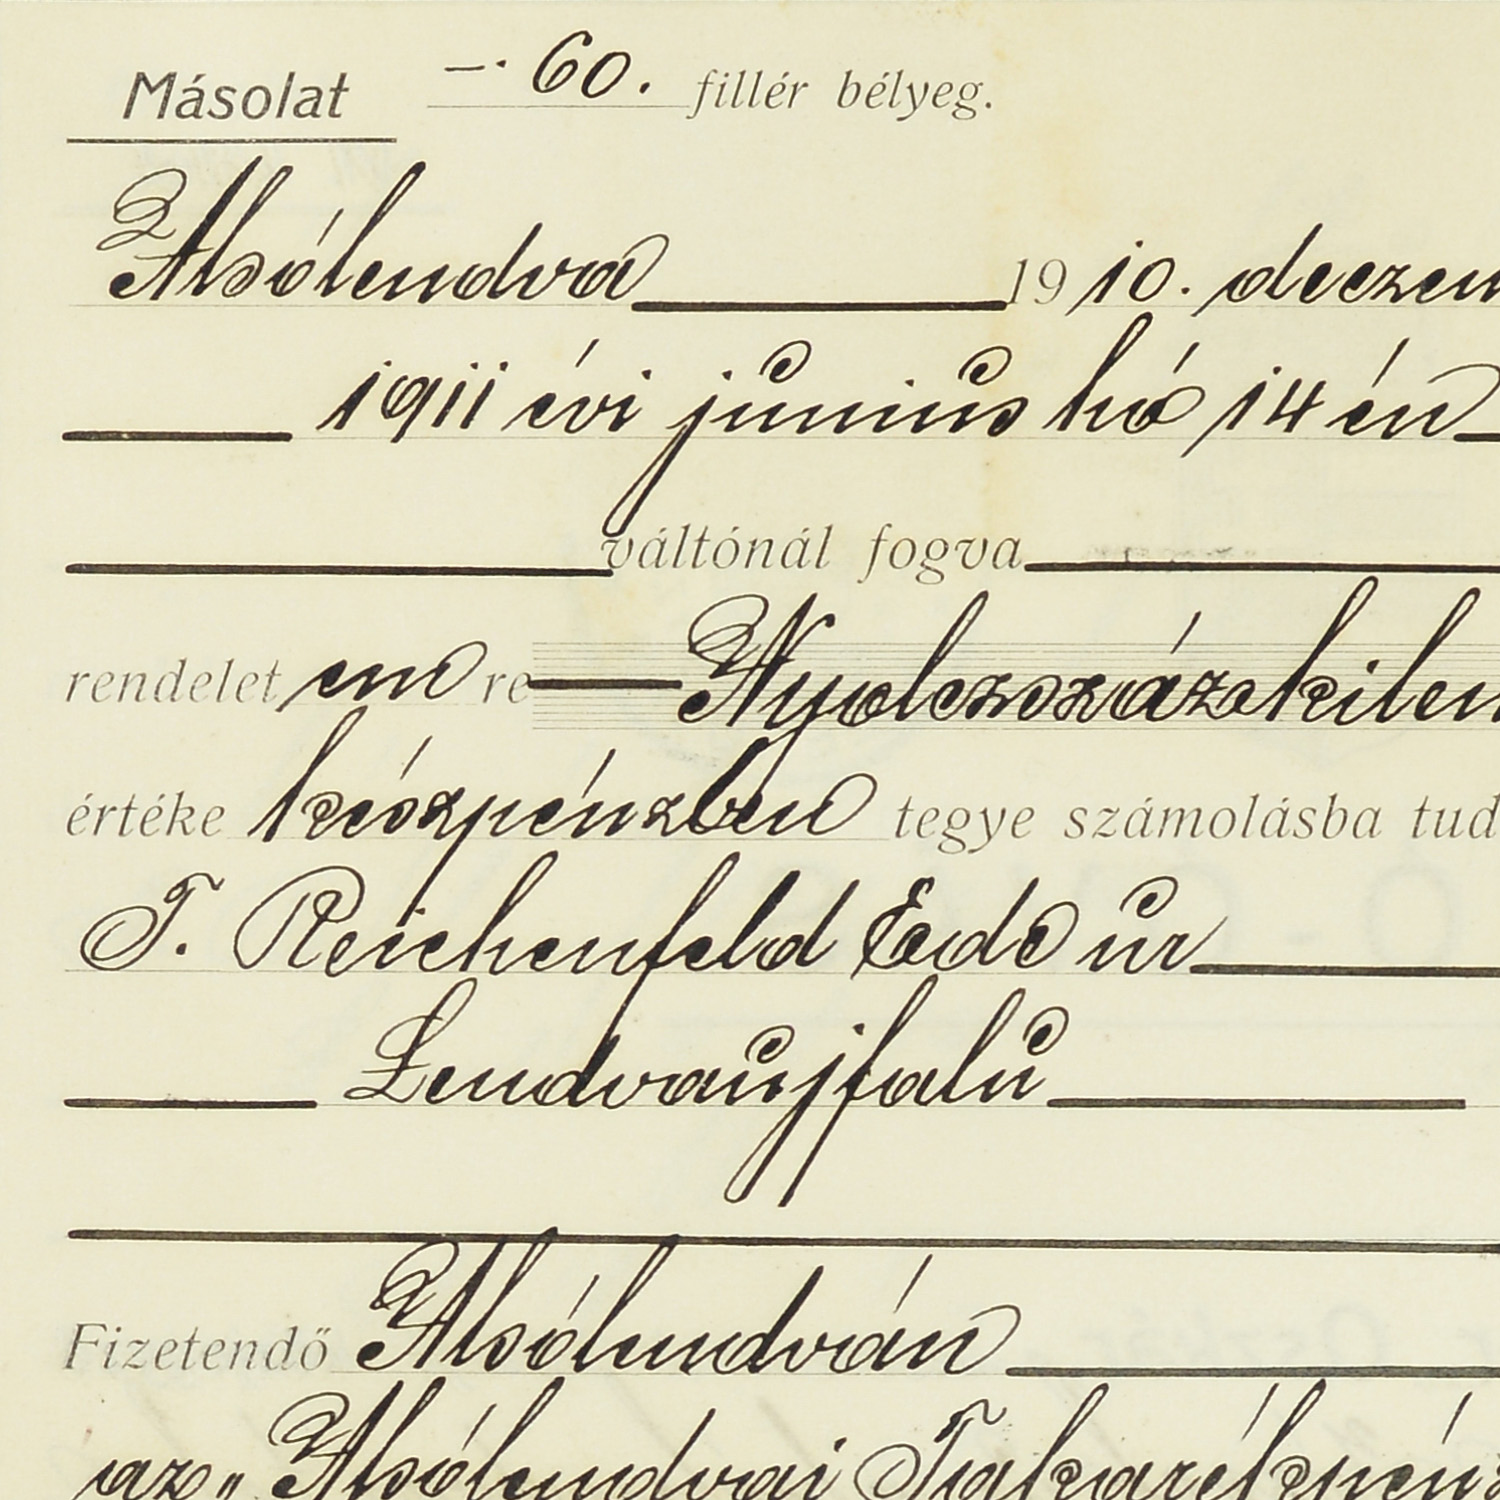 Másolat —. 60. fillér bélyeg.
Alsólendva 1910. deczem
1911 évi június hó 14 én
váltónál fogva
rendelet em re Nyolczszázkilen
értéke készpénzben tegye számolásba tud
T. Reichenfeld Ede úr
Lendvaujfalu
Fizetendő Alsólendván
az „Alsólendvai Takarékpénz